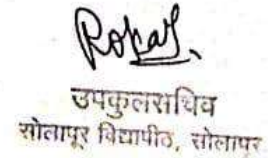 उपकुलसचिव
सोलापूर विद्यापीठ, सोलापूर